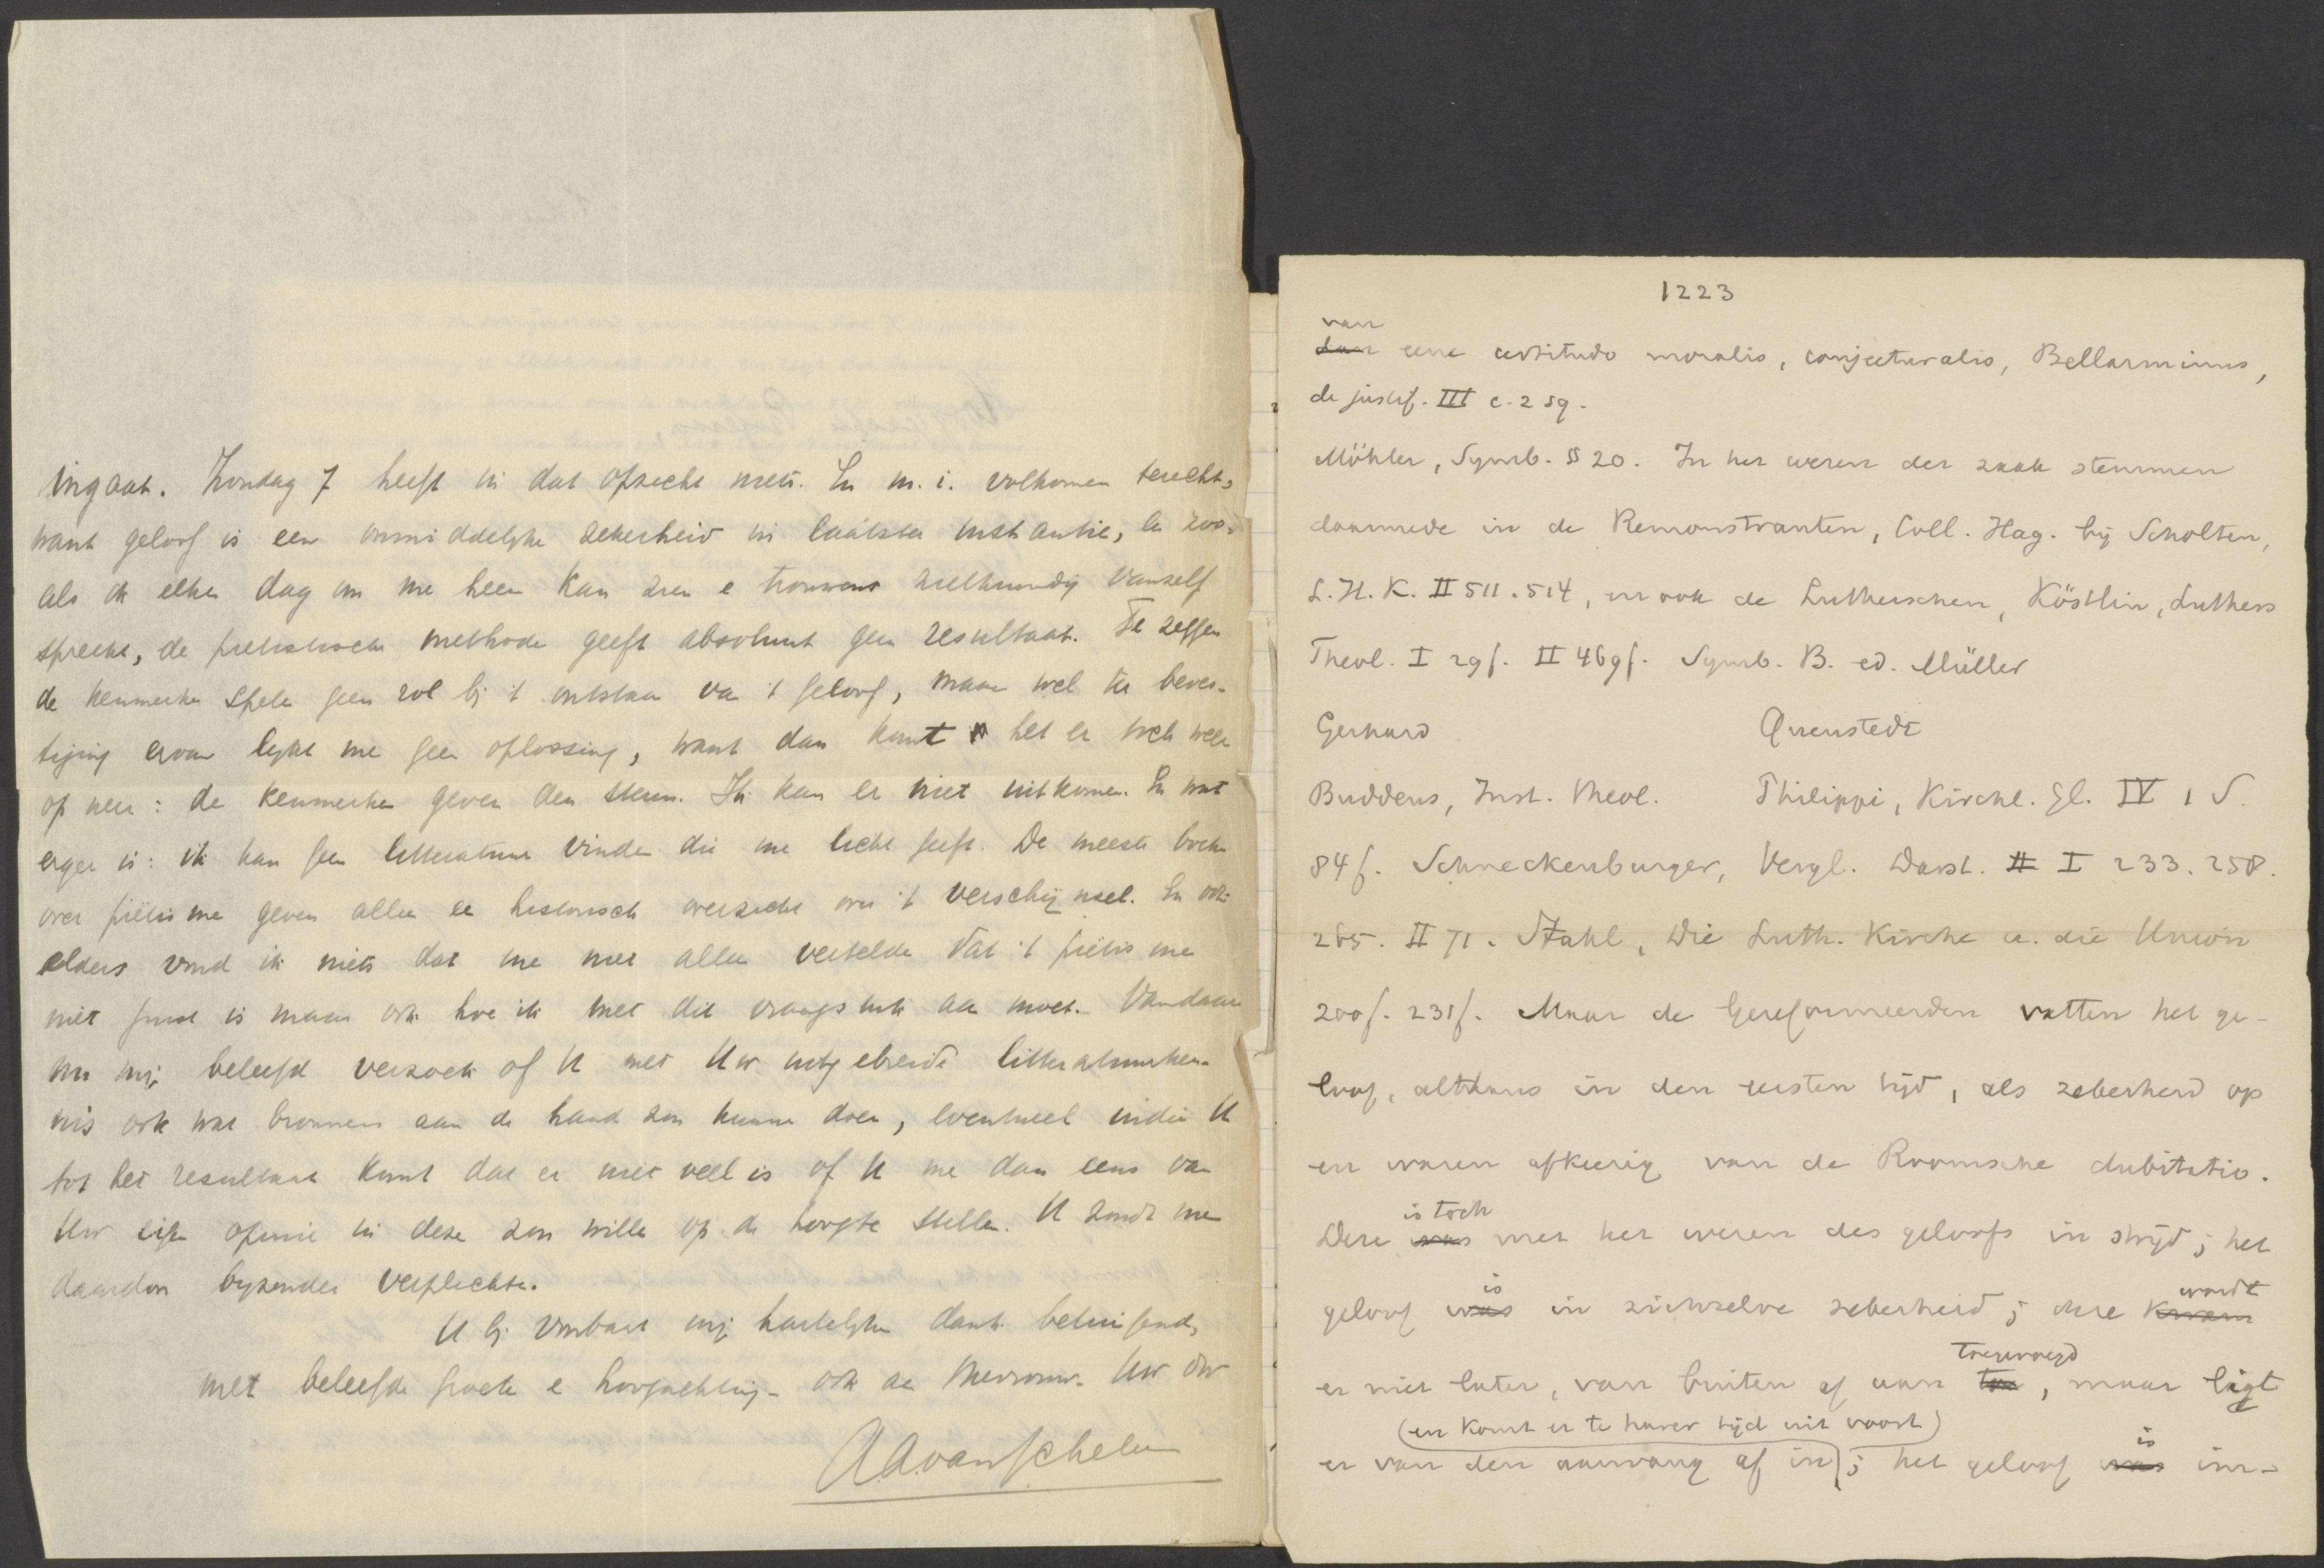 ingaat. Zondag 7 heeft in dat opzicht niets. En m. i. volkomen terecht,
want geloof is een onmiddelyke zekerheid in laatste instantie, en zoo-
als ik elken dag om me heen kan zien e trouwens zielkundig vanzelf
spreekt, de piëtistische methode geeft absoluut geen resultaat. Te zeggen
de kenmerken spelen geen rol bij 't ontstaan van 't geloof, maar wel ter beves-
tiging ervan lykt me geen oplossing, want dan komt het er toch weer
op neer: de kenmerken geven den steun. Ik kan er niet uitkomen. En wat
erger is: ik kan geen litteratuur vinden die me licht geeft. De meeste boeken
over piëtisme geven alleen een historisch overzicht over 't verschijnsel. En ook
elders vind ik niets dat me niet alleen vertelde dat 't piëtisme
niet goed is maar ook hoe ik met dit vraagstuk aan moet. Vandaar
nu mij beleefd verzoek of U met Uw uitgebreide litteratuurken-
nis ook wat bronnen aan de hand zou kunnen doen, eventueel indien U
tot het resultaat komt dat er niet veel is of U me dan eens van
Uw eigen opinie in deze zou willen op de hoogte stellen. U zoudt me
daardoor byzonder verplichten.
U bij voorbaat mij hartelyken dank betuigend,
met beleefde groete e hoogachting - ook aan Mevrouw. Uw dw
A.A. van Schelven
1223
van
dan eene certitudo moralis, conjecturalis, Bellarminus,
de justif. III c. 2 sq.
Möhler, Symb. § 20. In het wezen der zaak stemmen
daarmede in de Remonstranten, Coll. Hag. bij Scholten,
L. H. K. II 511. 514, en ook de Lutherschen, Köstlin, Luthers
Theol. I 29f. II 469f. Symb. B. ed. Müller
Gerhard Quenstedt
Buddeus, Inst. theol. Philippi, Kirchl. Gl. IV 1 S.
84f. Schneckenburger, Vergl. Darst. II I 233. 258.
265. II 71. Stahl, Die Luth. Kirche u. die Union
200f. 231f. Maar de Gereformeerden vatten het ge-
loof, althans in den eersten tijd, als zekerheid op
en waren afkeerig van de Roomsche dubitatio.
is toch
Deze was met het wezen des geloofs in strijd; het
is wordt
geloof was in zichzelve zekerheid; deze kwam
toegevoegd
er niet later, van buiten af aan toe, maar ligt
(en komt er te harer tijd uit voort)
is
er van den aanvang af in; het geloof was im-